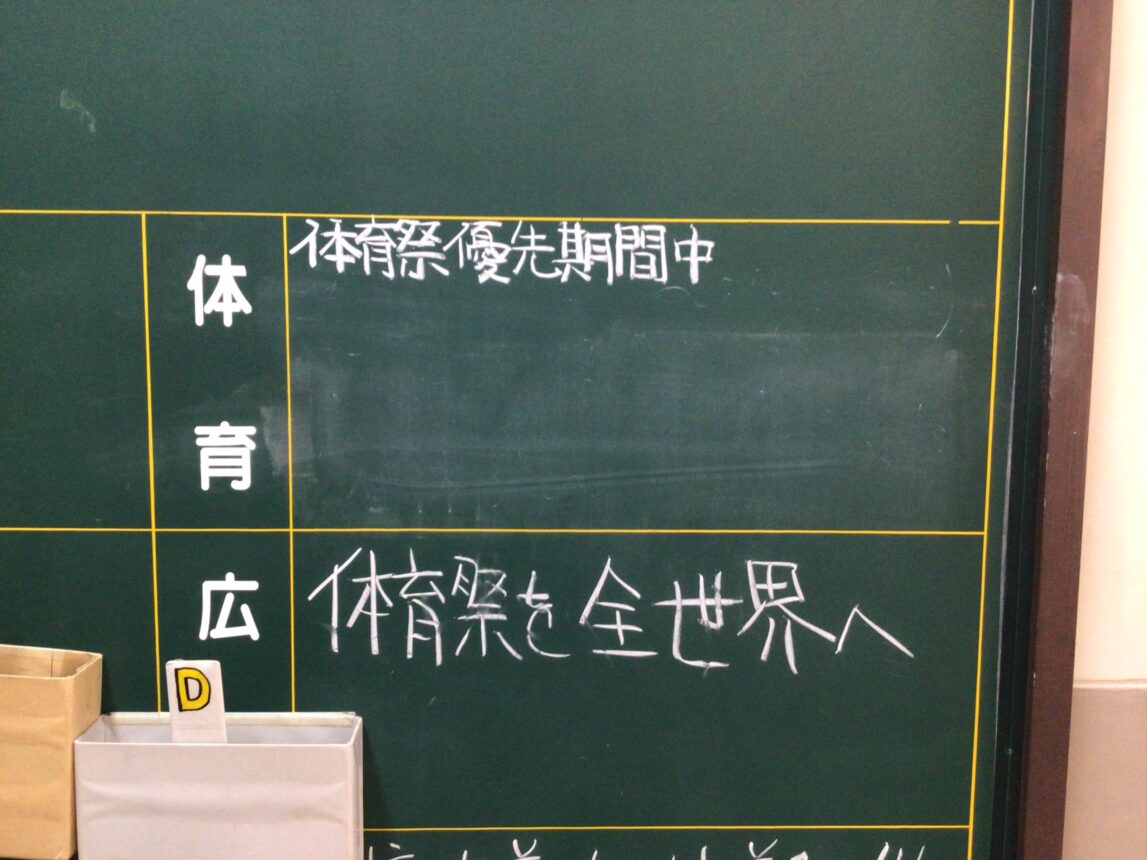 体育
体育祭優先期間中
広
体育祭を全世界へ
D